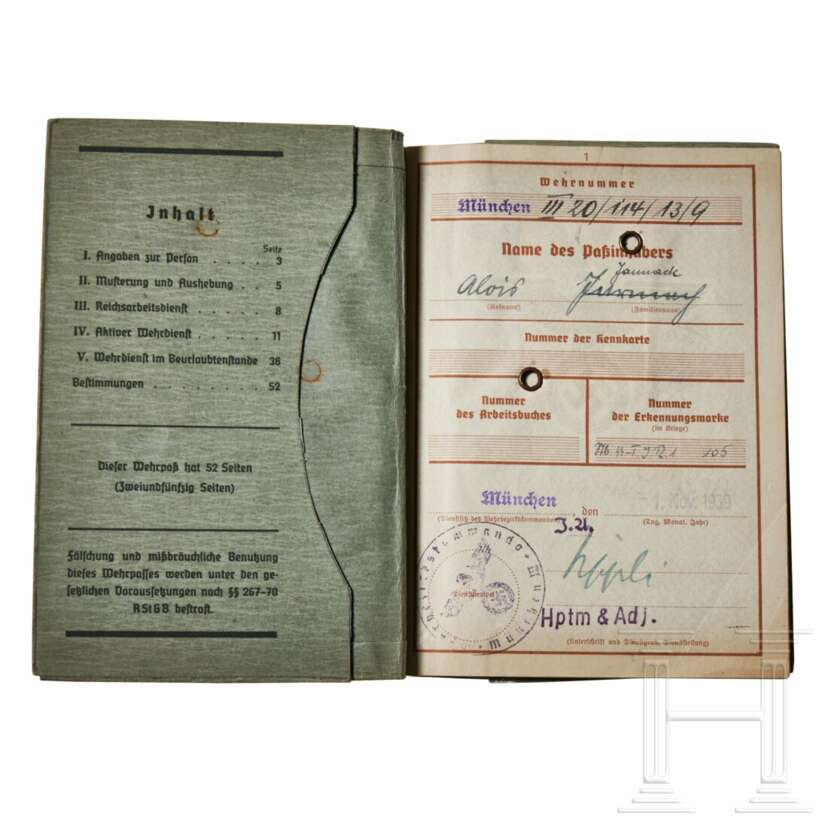 Inhalt
Seite
I. Angaben zur Person . . . . . 3
II. Musterung und Aushebung . . . 5
III. Reichsarbeitsdienst . . . . . 8
IV. Aktiver Wehrdienst . . . . . 11
V. Wehrdienst im Beurlaubtenstande 36
Bestimmungen . . . . . . . . 52
Dieser Wehrpaß hat 52 Seiten
(Zweiundfünfzig Seiten)
Fälschung und mißbräuchliche Benutzung
dieses Wehrpasses werden unter den ge-
setzlichen Voraussetzungen nach §§ 267-70
RStGB bestraft.
1
Wehrnummer
München III 20/114/13/9
Name des Paßinhabers
Jannack
Alois
(Rufname) (Familienname)
Nummer der Kennkarte
Nummer
des Arbeitsbuches
Nummer
der Erkennungsmarke
(im Kriege)
105
München, den 1. Nov. 1939
(Dienstsitz des Wehrbezirkskommandos) (Tag, Monat, Jahr)
J.A.
(Dienststempel)
Hptm & Adj.
(Unterschrift und Dienstgrad, Dienststellung)
H